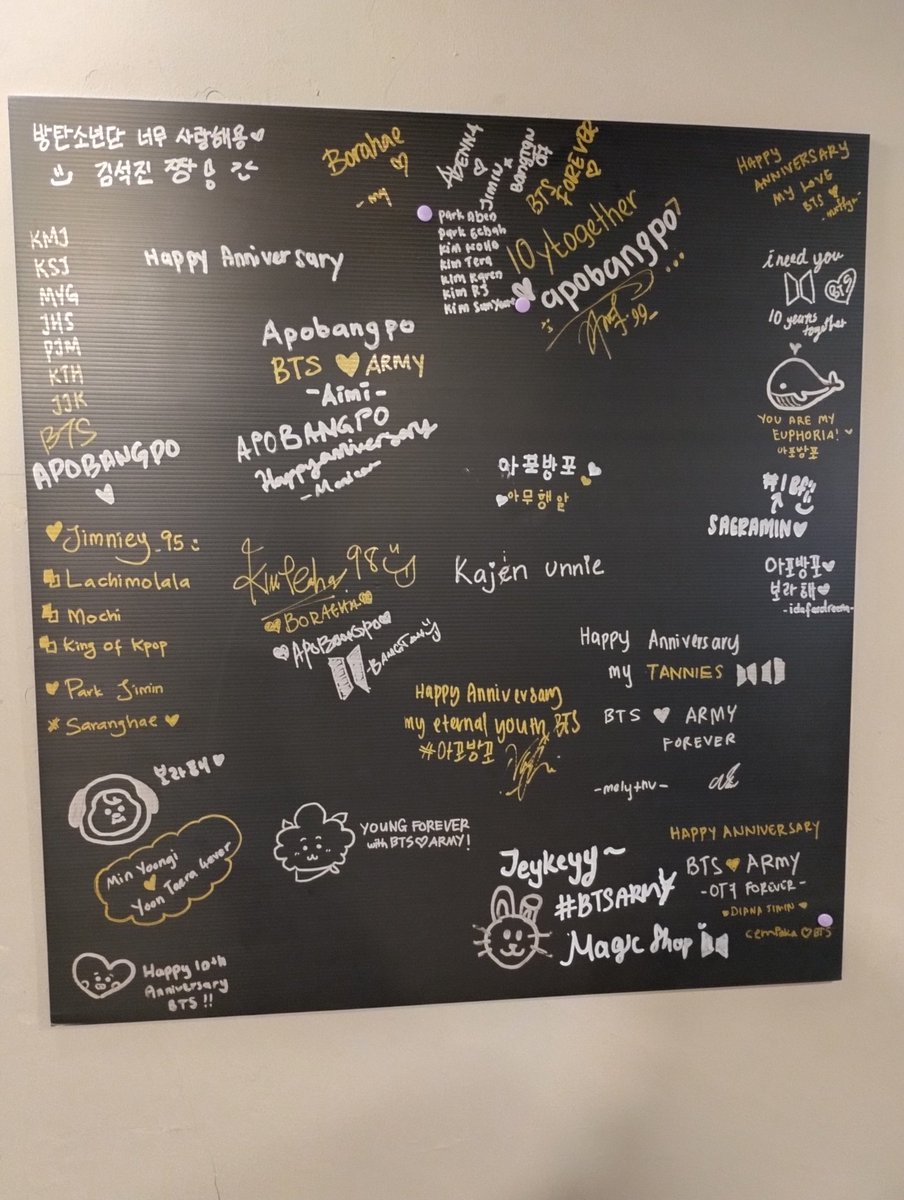 방탄소년단 너무 사랑해용♡
김석진 짱
KMJ
KSJ
MYG
JHS
PJM
KTH
JJK
BTS
APOBANGPO
Borahae
Happy Anniversary
Apobangpo
BTS ♥ ARMY
-Aimi-
APOBANGPO
Happy anniversary
JIMIN
BTS
FOREVER
Park Aben
Park Gebah
Kim Tera
Kim Karen
Kim RJ
10ytogether
apobangpo
HAPPY
ANNIVERSARY
MY LOVE
BTS
i need you
BTS
10 years
together
YOU ARE MY
EUPHORIA!
아포방포
아포방포
아무행알
SAGRAMIN♥
아포방포♥
보라해♥
♥Jimniey_95
Lachimolala
Mochi
King of Kpop
♥ Park Jimin
Saranghae ♥
98
♥APOBANGPO♥
Kajen unnie
Happy Anniversary
my TANNIES
BTS ♥ ARMY
FOREVER
Happy Anniversary
my eternal youth BTS
#아포방포
보라해♥
Min Yoongi
♥
YOUNG FOREVER
with BTS♡ARMY!
Jeykeyy~
#BTSARMY
Magic Shop
HAPPY ANNIVERSARY
BTS♥ARMY
-OT7 FOREVER-
♥DIANA JIMIN♥
cempaka ♡BTS
Happy 10th
Anniversary
BTS!!